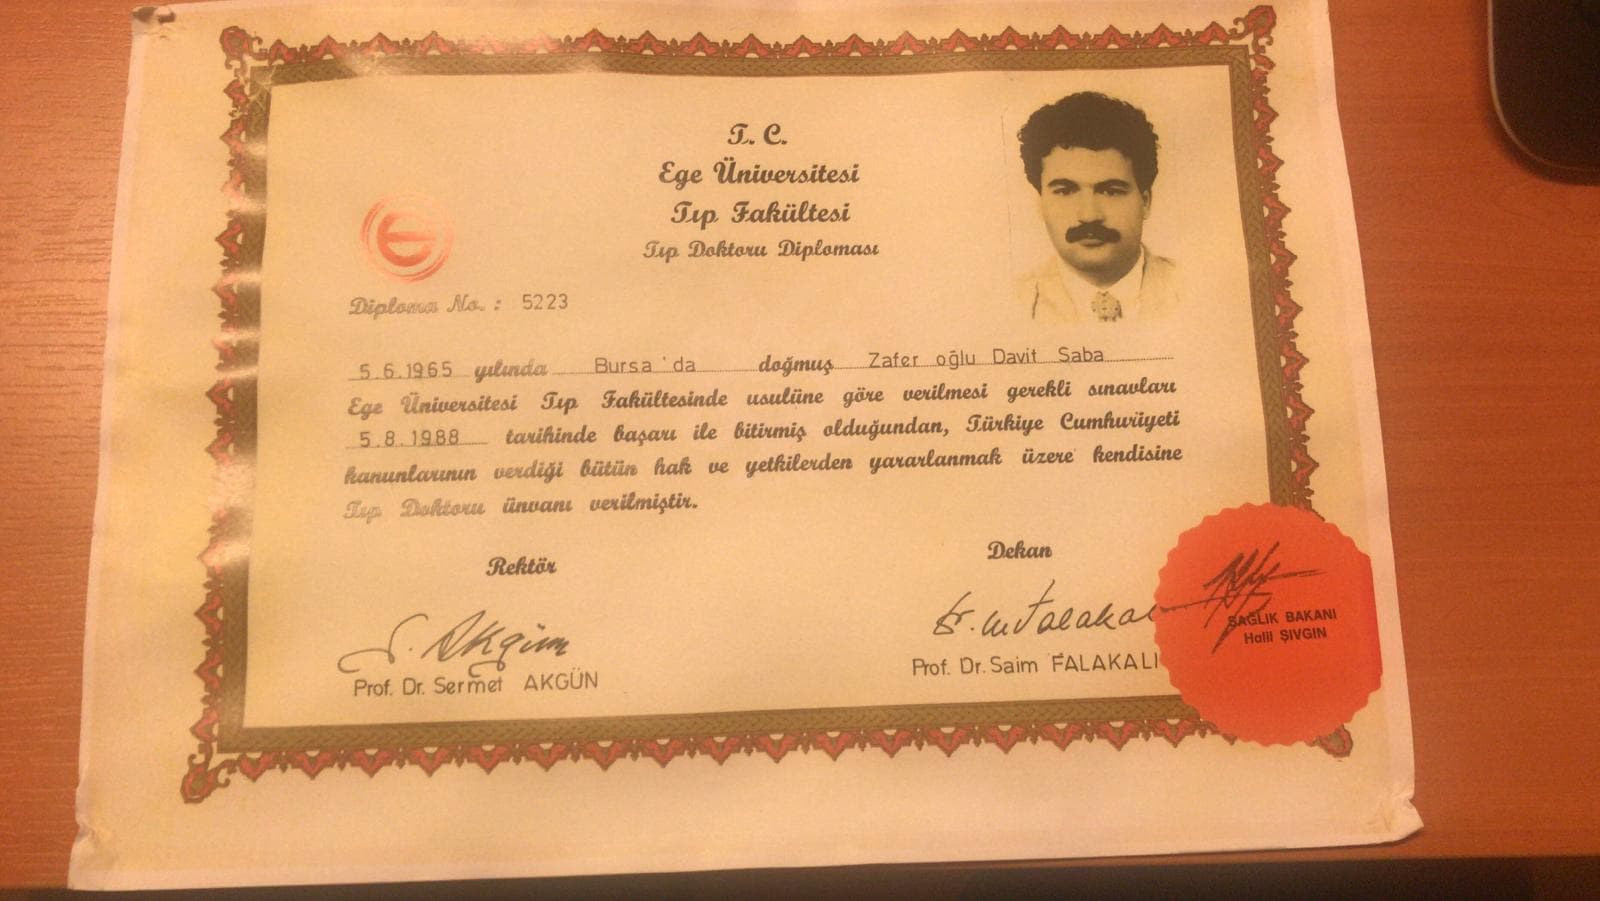 T. C.
Ege Üniversitesi
Tıp Fakültesi
Tıp Doktoru Diploması
Diploma No. : 5223
5.6.1965 yılında Bursa'da doğmuş Zafer oğlu Davit Saba
Ege Üniversitesi Tıp Fakültesinde usulüne göre verilmesi gerekli sınavları
5.8.1988 tarihinde başarı ile bitirmiş olduğundan, Türkiye Cumhuriyeti
kanunlarının verdiği bütün hak ve yetkilerden yararlanmak üzere kendisine
Tıp Doktoru ünvanı verilmiştir.
Rektör
Dekan
S. Akgün
Prof. Dr. Sermet AKGÜN
Prof. Dr. Saim FALAKALI
SAĞLIK BAKANI
Halil ŞIVGIN